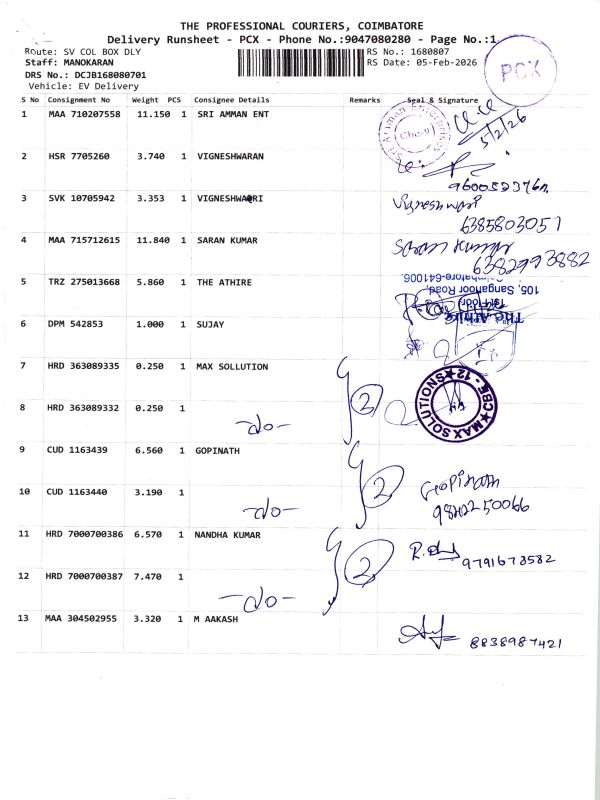 THE PROFESSIONAL COURIERS, COIMBATORE
Delivery Runsheet - PCX - Phone No.:9047080280 - Page No.:1
Route: SV COL BOX DLY
RS No.: 1680807
Staff: MANOKARAN
RS Date: 05-Feb-2026
DRS No.: DCJB168080701
Vehicle: EV Delivery
PCX
S No Consignment No Weight PCS Consignee Details Remarks Seal & Signature
1 MAA 710207558 11.150 1 SRI AMMAN ENT
Sri Amman Enterprises
Cbe-9
5/2/26
2 HSR 7705260 3.740 1 VIGNESHWARAN
3 SVK 10705942 3.353 1 VIGNESHWARI
Vigneshwari
6385803051
4 MAA 715712615 11.840 1 SARAN KUMAR
Saran Kumar
6382993882
5 TRZ 275013668 5.860 1 THE ATHIRE
The Athire
1st Floor
105, Sanganoor Road,
Coimbatore-641006.
6 DPM 542853 1.000 1 SUJAY
7 HRD 363089335 0.250 1 MAX SOLLUTION
2
MAX SOLUTIONS CBE - 12
8 HRD 363089332 0.250 1
-do-
9 CUD 1163439 6.560 1 GOPINATH
2
Gopinath
10 CUD 1163440 3.190 1
-do-
11 HRD 7000700386 6.570 1 NANDHA KUMAR
2
9791673582
12 HRD 7000700387 7.470 1
-do-
13 MAA 304502955 3.320 1 M AAKASH
8838987421